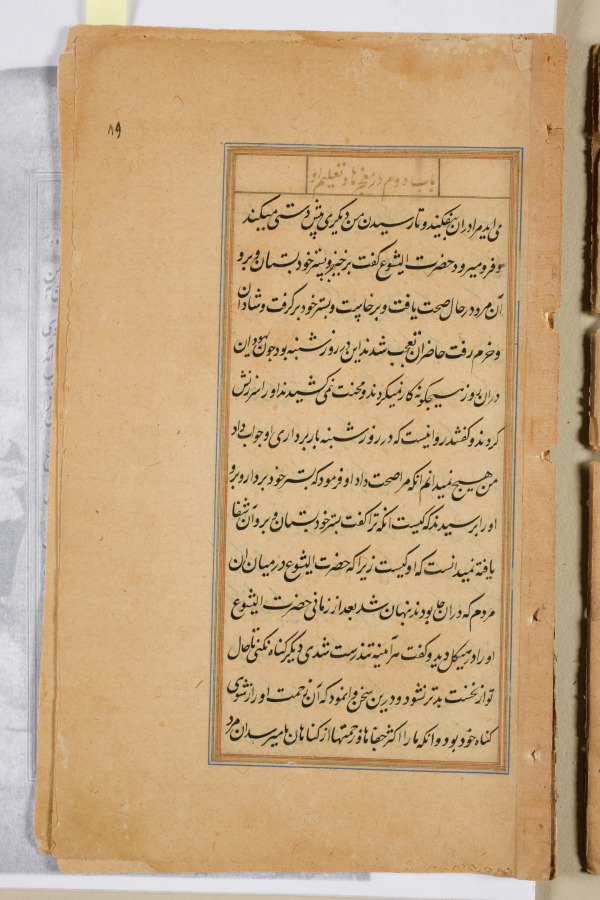 ۸۹
باب دوم در معجزها و تعلیم او
می اید مرا دران بیفکیند و تا رسیدن من دیگری پیش دستی میکند
و فرو میرود حضرت ایشوع کفت برخیز و بستر خود بستان و برو
آن مرد در حال صحت یافت و برخاست و بستر خود برکرفت و شادان
و خرم رفت حاضران تعجب شدند این در روز شنبه بود جون یهودیان
دران روز هیچکونه کار نمیکردند و محنت نمی کشیدند او را سرزنش
کردند و کفتند روا نیست که در روز شنبه بار برداری او جواب داد
من هیچ نمیدانم انکه مرا صحت داد او فرمود که بستر خود بردار و برو
او را برسیدند که کیست انکه ترا کفت بستر خود بستان و برو آن شفا
یافته نمیدانست که او کیست زیرا که حضرت ایشوع در میان ان
مردم که دران جا بودند نهان شد بعد از زمانی حضرت ایشوع
او را در هیکل دید و کفت هر آینه تندرست شدی دیگر کناه نکنی تا حال
تو از نخست بدتر نشود و درین سخن وا نمود که آن زحمت او را از شومی
کناه خود بود و انکه ما را اکثر جفاها و زحمتها از کناهان ما میرسد ان مرد